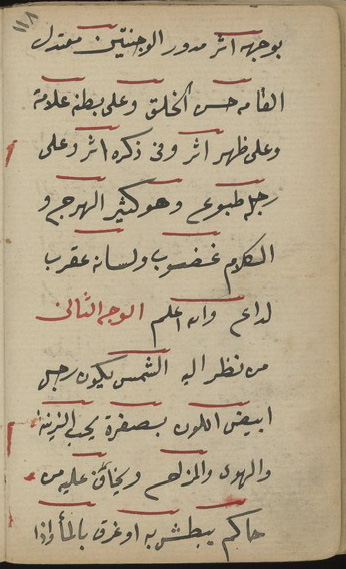 ١١٨
بوجهه اثر مدور الوجنتين معتدل
القامه حسن الخلق وعلى بطنه علامة
وعلى ظهر اثر وفى ذكره اثر وعلى
رجله طبوع وهو كثير الهرج و
الكلام غضوب ولسانه عقرب
لداع والله اعلم الوجه الثانى
من نظر اليه الشمس يكون رجل
ابيض اللون بصفرة يحب الزينة
والهوى والمزاح ويخاف عليه من
حاكم يبطش به او غرق بالماء واذا